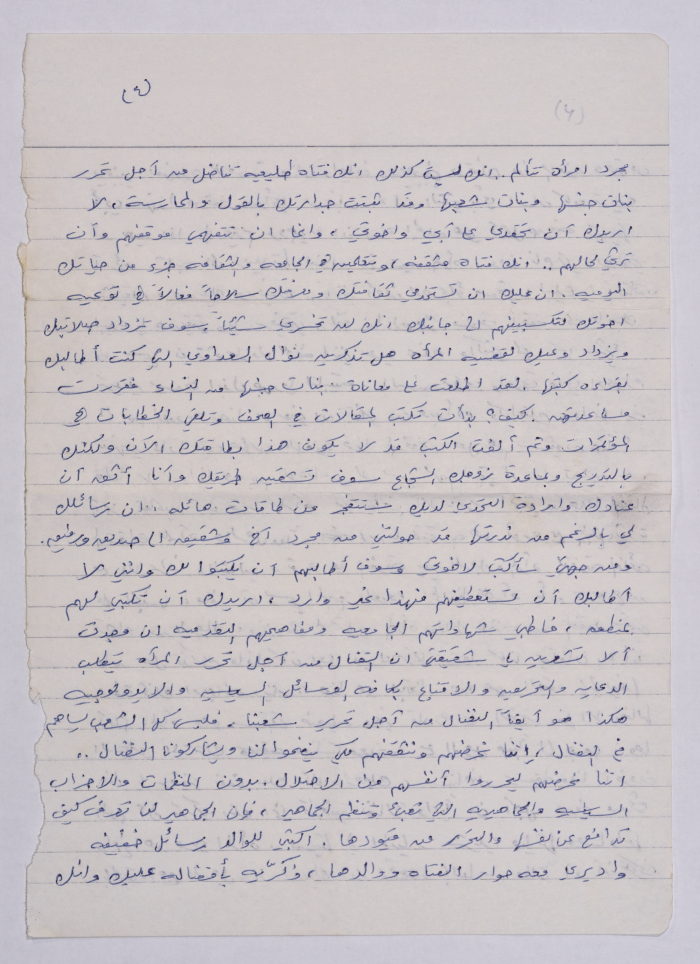 (٤)
(٤)
مجرد امرأه تتألم .. انك لست كذلك انك فتاه طليعيه تناضل من أجل تحرر
بنات جنسها وبنات شعبها وقد ثبتت جدارتك بالقول والممارسه ، لا
اريدك أن تحقدي على أبي واخوتي ، وانما ان تتفهمي موقفهم وأن
ترثي لحالهم .. انك فتاه مثقفه وتتعلمين في الجامعه والثقافه جزء من حياتك
اليوميه . ان عليك ان تستخدمي ثقافتك ومعرفتك سلاحاً فعالاً في توعيه
اخوتك فتكسبينهم الى جانبك انك لن تخسري شيئاً وسوف تزداد صلابتك
ويزداد وعيك لقضيه المرأه هل تذكرين نوال السعداوي التي كنت أطالبك
بقراءه كتبها . لقد اطلعت على معاناة بنات جنسها من النساء فقررت
مساعدتهن اكيف؟ بدأت تكتب المقالات في الصحف وتلقي الخطابات في
المؤتمرات وثم ألفت الكتب قد لا يكون هذا بطاقتك الآن ولكنك
بالتدريج وبمساعدة زوجك الشجاع سوف تشقين طريقك وأنا أثق أن
عنادك وارادة التحدي لديك ستتفجر عن طاقات هائله . ان رسائلك
لي بالرغم من ندرتها قد حولتني من مجرد أخ وشقيق الى صديق ورفيق .
ومن جهتي سأكتب لاخوتي وسوف أطالبهم أن يكتبوا لك وانني لا
أطالبك أن تستعطفيهم فهذا غير وارد ، اريدك أن تكتبي لهم
بمنطق ، خاطبي شهاداتهم الجامعيه ومفاهيمهم التقدميه ان وجدت
ألا تشعرين يا شقيقتي ان النضال من أجل تحرر المرأه يتطلب
الدعايه والتحريض والاقناع بكافه الوسائل السياسيه والايديولوجيه
هكذا هو أيضاً النضال من أجل تحرير شعبنا ، فليس كل الشعب يساهم
في النضال ، اننا نحرضهم ونثقفهم لكي ينضموا لنا ويشاركونا النضال ..
اننا نحرضهم ليحرروا أنفسهم من الاحتلال . بدون المنظمات والاحزاب
السياسيه والجماهيريه التي تعبئ وتنظم الجماهير ، فإن الجماهير لن تعرف كيف
تدافع عن نفسها والتحرر من قيودها . اكتبي للوالد رسائل خفيفه
واديري معه حوار الفتاه ووالدها ، ذكريه بأفضاله عليك وانك